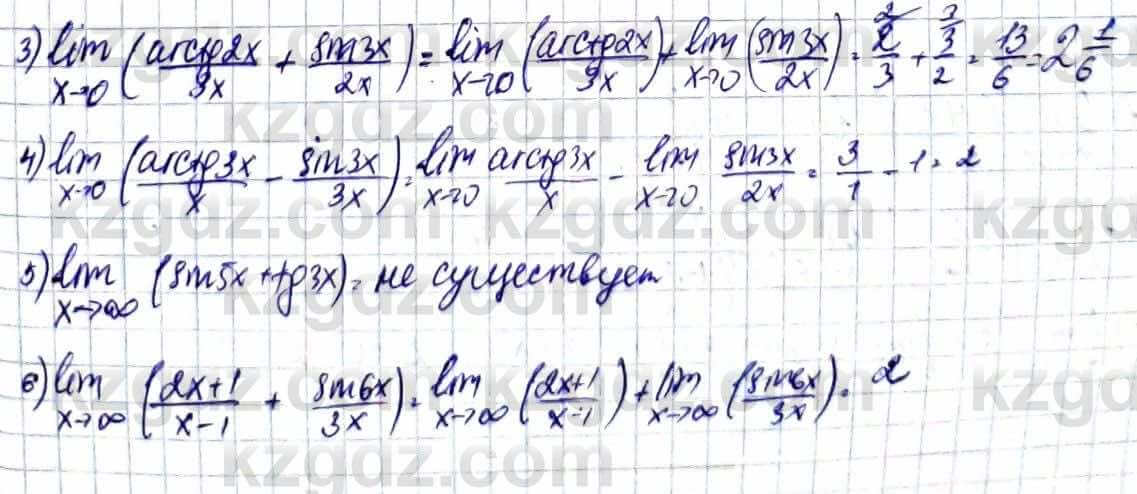 3) lim x→0 (arctg2x/3x + sin3x/2x) = lim x→0 (arctg2x/3x) + lim x→0 (sin3x/2x) = 2/3 + 3/2 = 13/6 = 2 1/6
4) lim x→0 (arctg3x/x - sin3x/3x) = lim x→0 arctg3x/x - lim x→0 sin3x/2x = 3/1 - 1 = 2
5) lim x→∞ (sin5x + tg3x) = не существует
6) lim x→∞ (2x+1/x-1 + sin6x/3x) = lim x→∞ (2x+1/x-1) + lim x→∞ (sin6x/3x) = 2
kzgdz.com kzgdz.com kzgdz.com